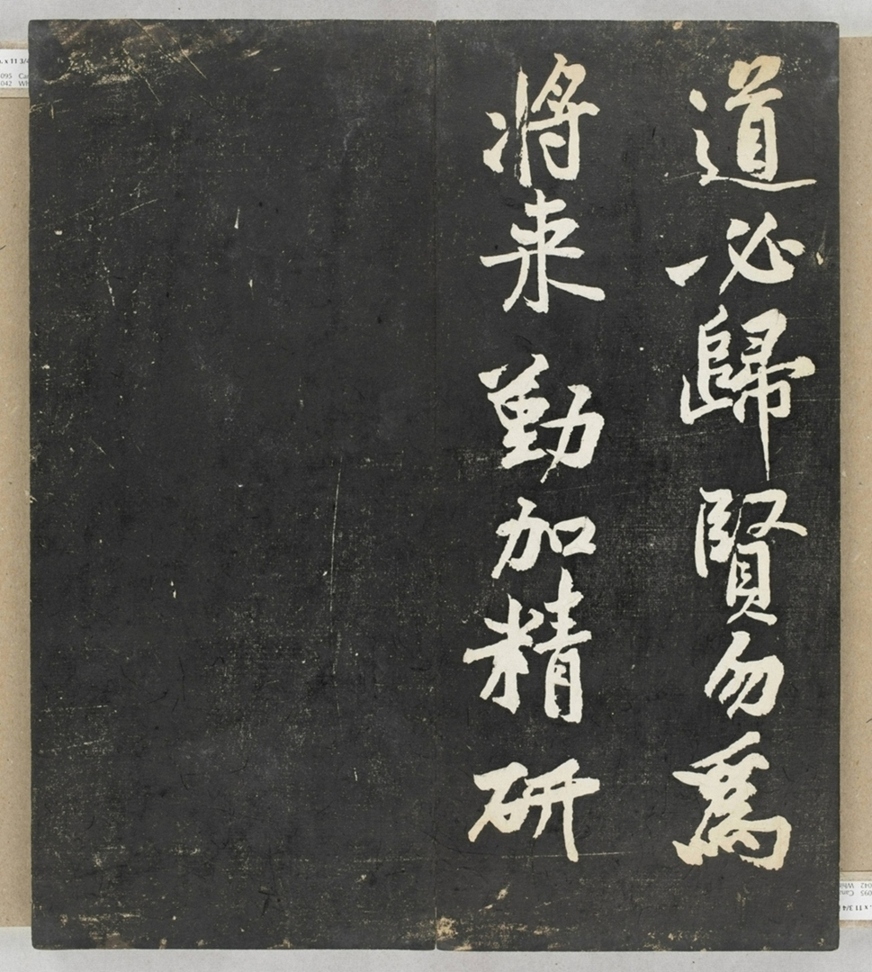 道必歸賢勿爲
將来勤加精研